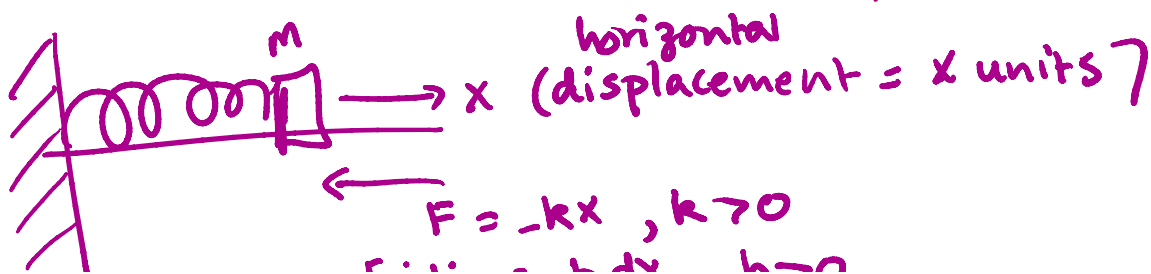 M
horizontal
x (displacement = x units)
F = -kx , k >0